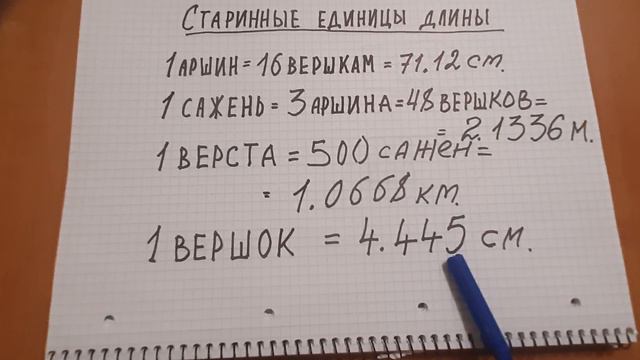 Старинные единицы длины
1 аршин = 16 вершкам = 71.12 см.
1 сажень = 3 аршина = 48 вершков =
= 2.1336 м.
1 верста = 500 сажен =
= 1.0668 км.
1 вершок = 4.445 см.